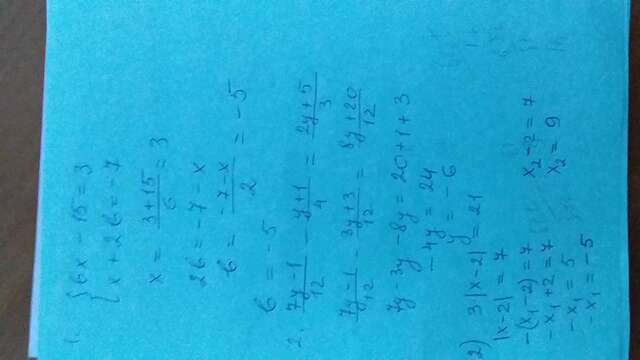 1.
{6x - 15 = 3
{x + 2b = -7
x = (3+15)/6 = 3
2b = -7 - x
b = (-7-x)/2 = -5
b = -5
2. (7y-1)/12 - (y+1)/4 = (2y+5)/3
(7y-1)/12 - (3y+3)/12 = (8y+20)/12
7y - 3y - 8y = 20 + 1 + 3
-4y = 24
y = -6
2) 3·|x-2| = 21
|x-2| = 7
-(x₁-2) = 7    x₂-2 = 7
-x₁+2 = 7    x₂ = 9
-x₁ = 5
-x₁ = -5